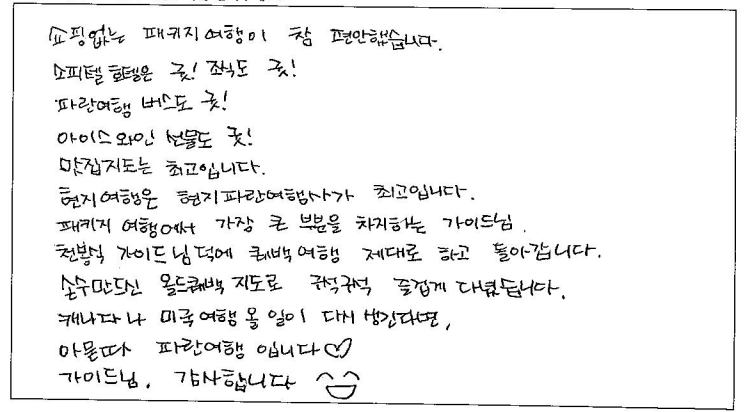 쇼핑없는 패키지 여행이 참 편안했습니다.
소피텔 호텔은 굿! 조식도 굿!
파란여행 버스도 굿!
아이스 와인 선물도 굿!
맛집지도는 최고입니다.
현지여행은 현지파란여행사가 최고입니다.
패키지 여행에서 가장 큰 부분을 차지하는 가이드님.
천봉식 가이드님덕에 퀘백여행 제대로 하고 돌아갑니다.
손수만드신 올드퀘백 지도로 구석구석 즐겁게 다녔습니다.
캐나다나 미국여행 올 일이 다시 생긴다면,
아묻따 파란여행 입니다♡
가이드님. 감사합니다 ^^